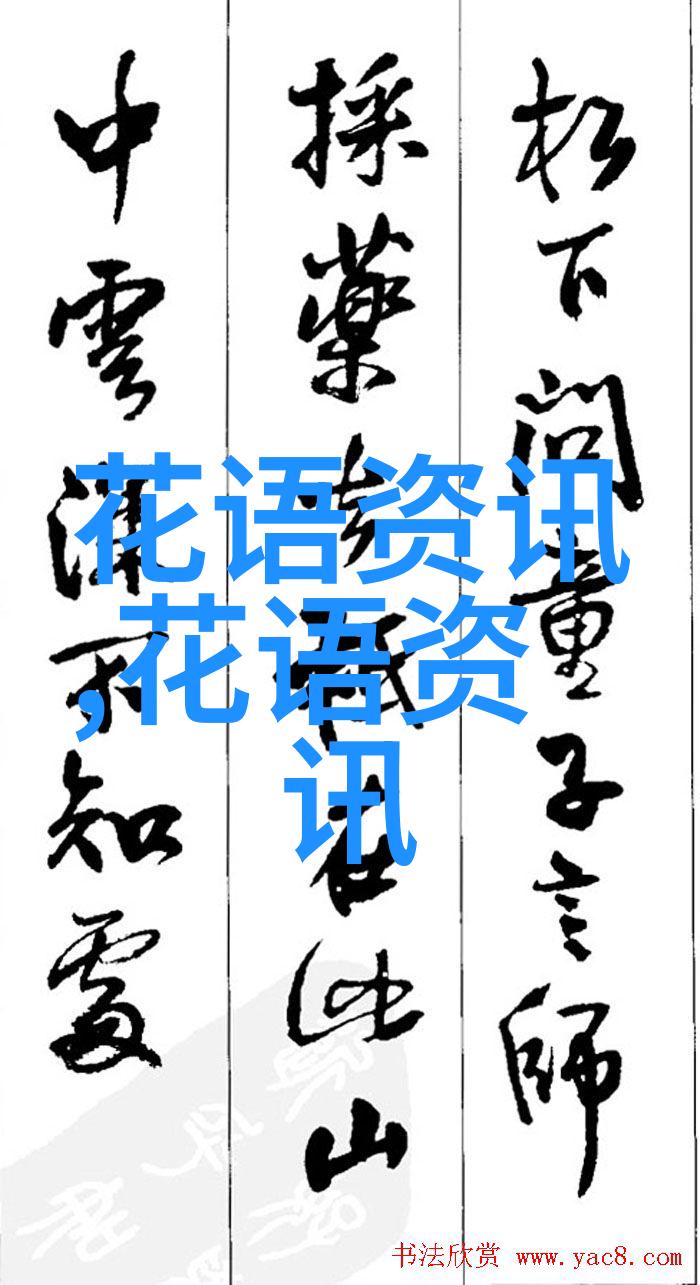 松下问童子言師
採藥去在此山
中雲深不知處
花语资讯
,花语资
讯
书法欣赏 www.yac8.com